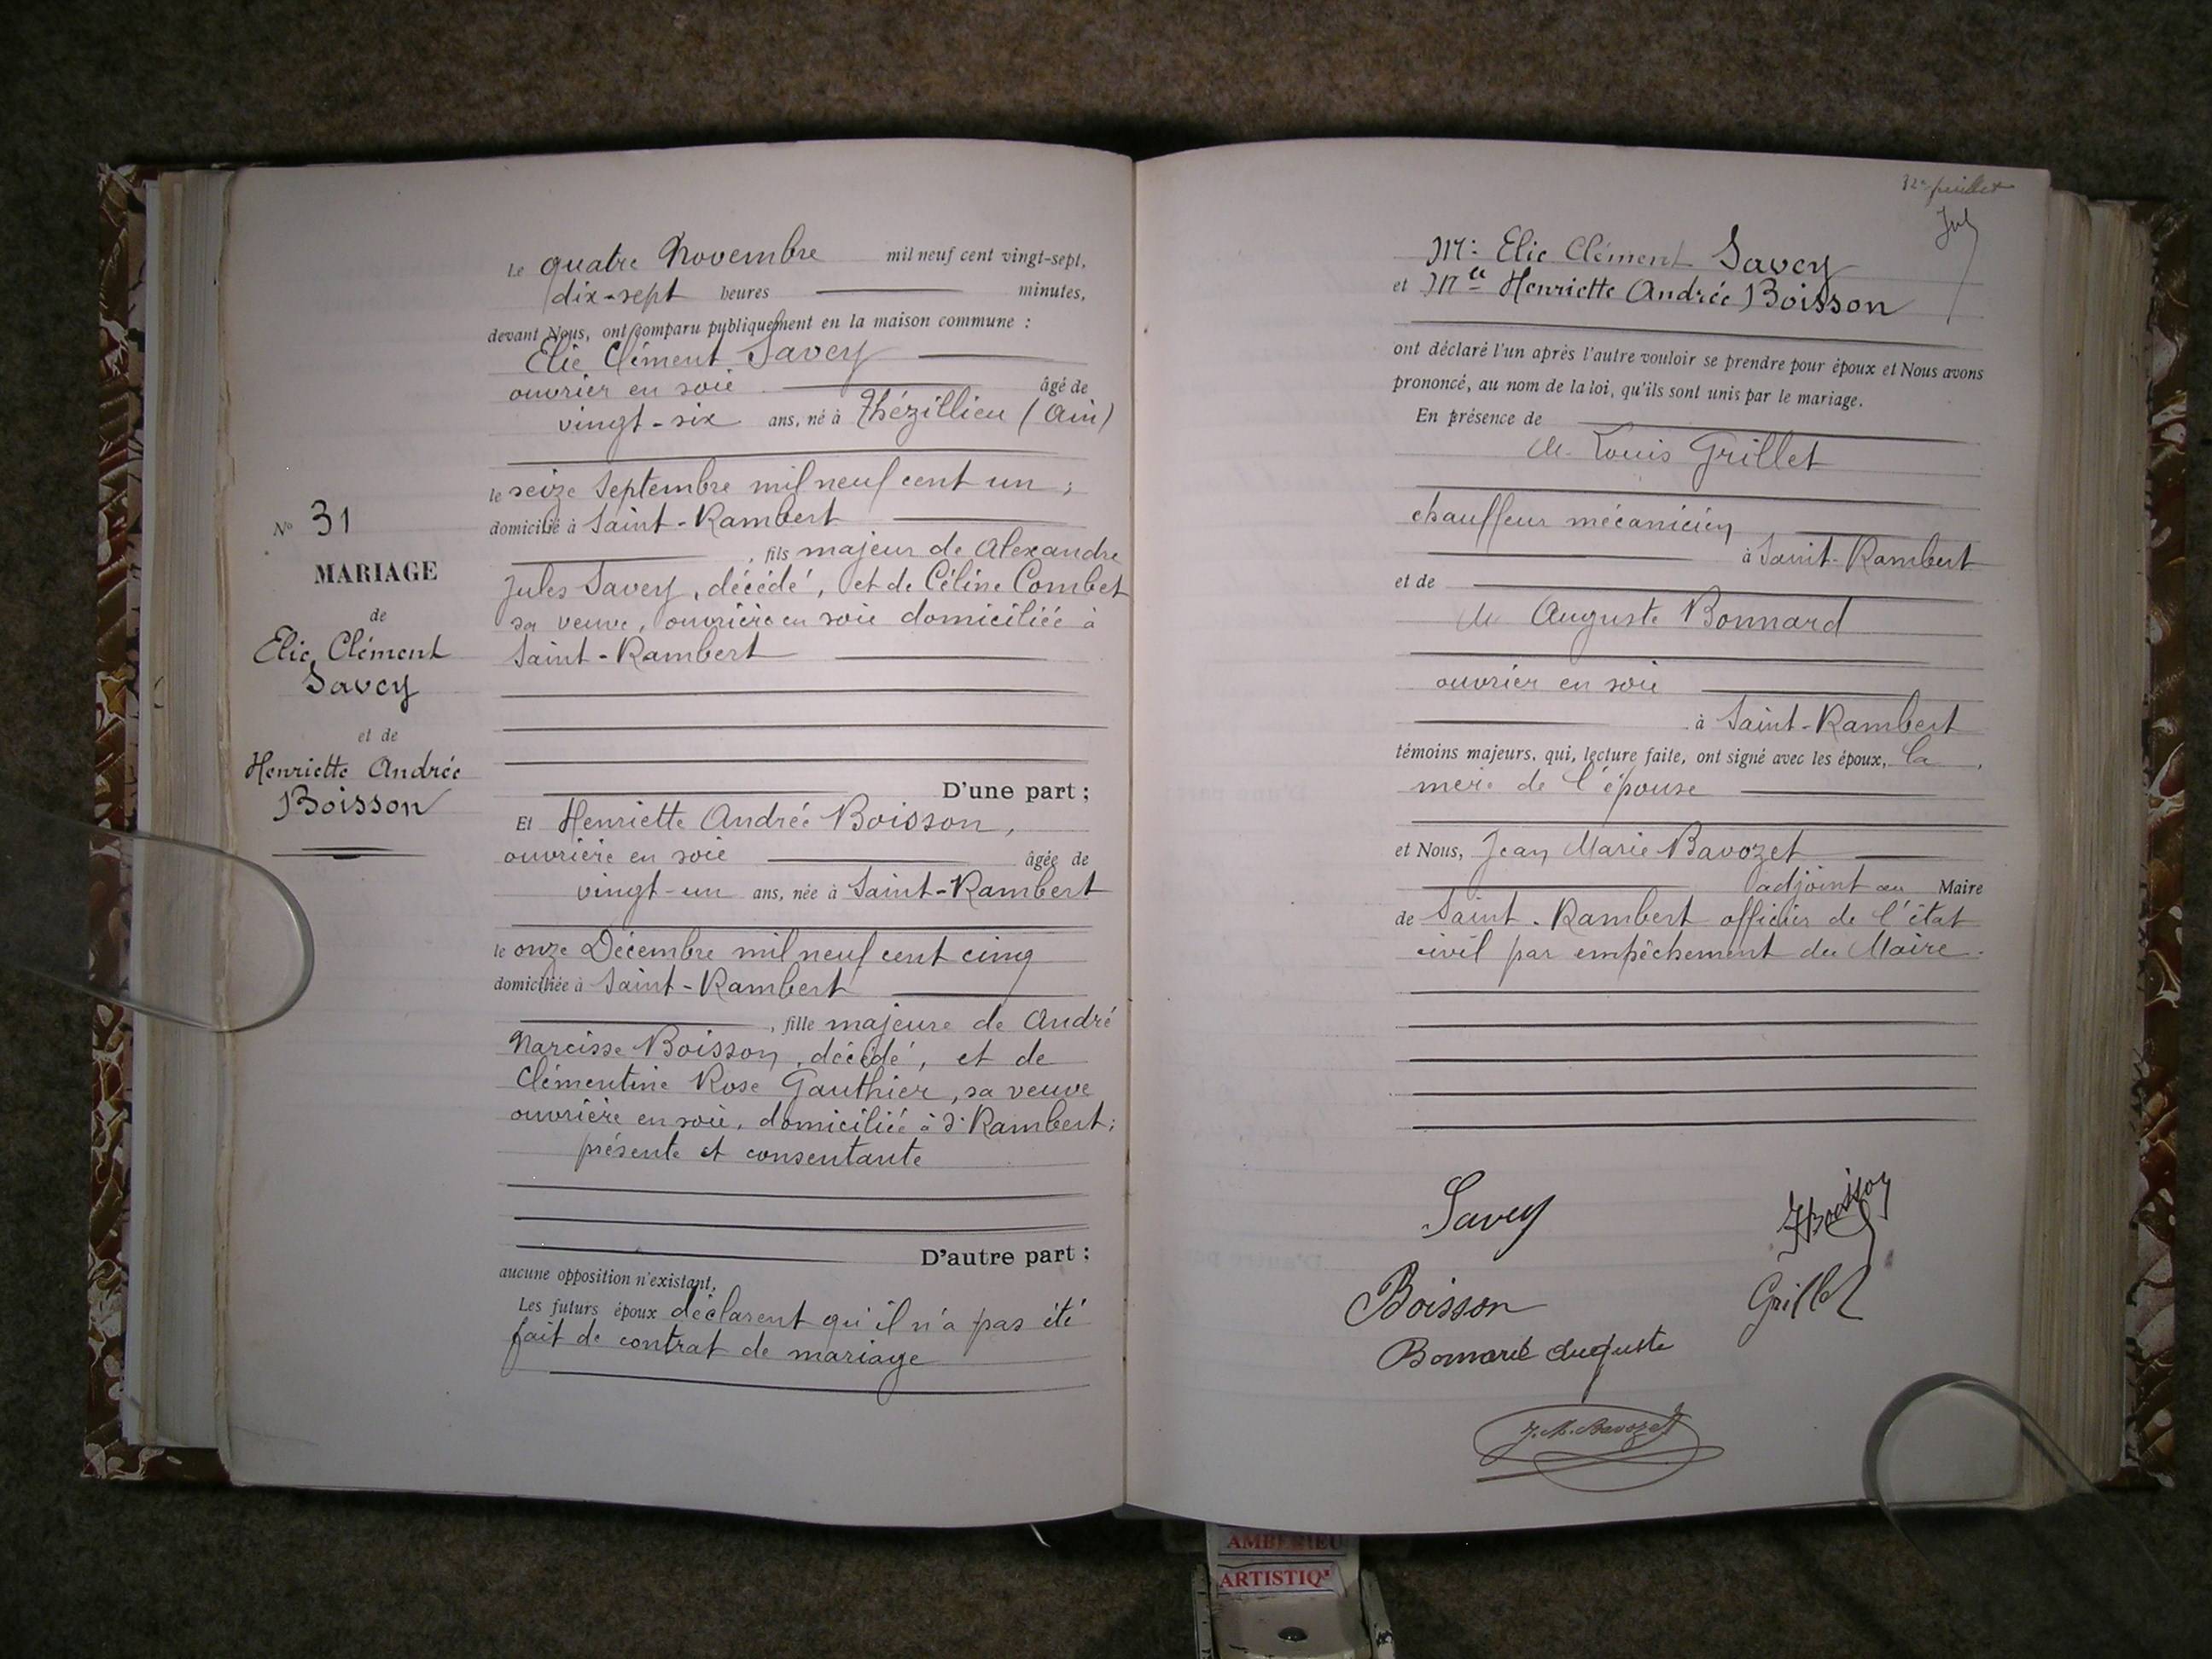 Nº 31
MARIAGE
de
Elie Clément
Savey
et de
Henriette Andrée
Boisson
Le quatre Novembre mil neuf cent vingt-sept,
dix-sept heures minutes,
devant Nous, ont comparu publiquement en la maison commune :
Elie Clément Savey
ouvrier en soie âgé de
vingt-six ans, né à Thézillieu (Ain)
le seize Septembre mil neuf cent un ;
domicilié à Saint-Rambert
, fils majeur de Alexandre
Jules Savey, décédé, et de Céline Combet
sa veuve, ouvrière en soie domiciliée à
Saint-Rambert
D'une part ;
Et Henriette Andrée Boisson,
ouvrière en soie âgée de
vingt-un ans, née à Saint-Rambert
le onze Décembre mil neuf cent cinq
domiciliée à Saint-Rambert
, fille majeure de André
Narcisse Boisson, décédé, et de
Clémentine Rose Gauthier, sa veuve
ouvrière en soie, domiciliée à St Rambert ;
présente et consentante
D'autre part ;
aucune opposition n'existant,
Les futurs époux déclarent qu'il n'a pas été
fait de contrat de mariage
32e feuillet
Mr Elie Clément Savey
et Mlle Henriette Andrée Boisson
ont déclaré l'un après l'autre vouloir se prendre pour époux et Nous avons
prononcé, au nom de la loi, qu'ils sont unis par le mariage.
En présence de
M. Louis Grillet
chauffeur mécanicien
à Saint-Rambert
et de
M Auguste Bonnard
ouvrier en soie
à Saint-Rambert
témoins majeurs, qui, lecture faite, ont signé avec les époux, la
mère de l'épouse
et Nous, Jean Marie Bavozet
adjoint au Maire
de Saint-Rambert officier de l'état
civil par empêchement du Maire.
Savey
HBoisson
Boisson
Grillet
Bonnard Auguste
J. M. Bavozet
AMBERIEU
ARTISTIQ